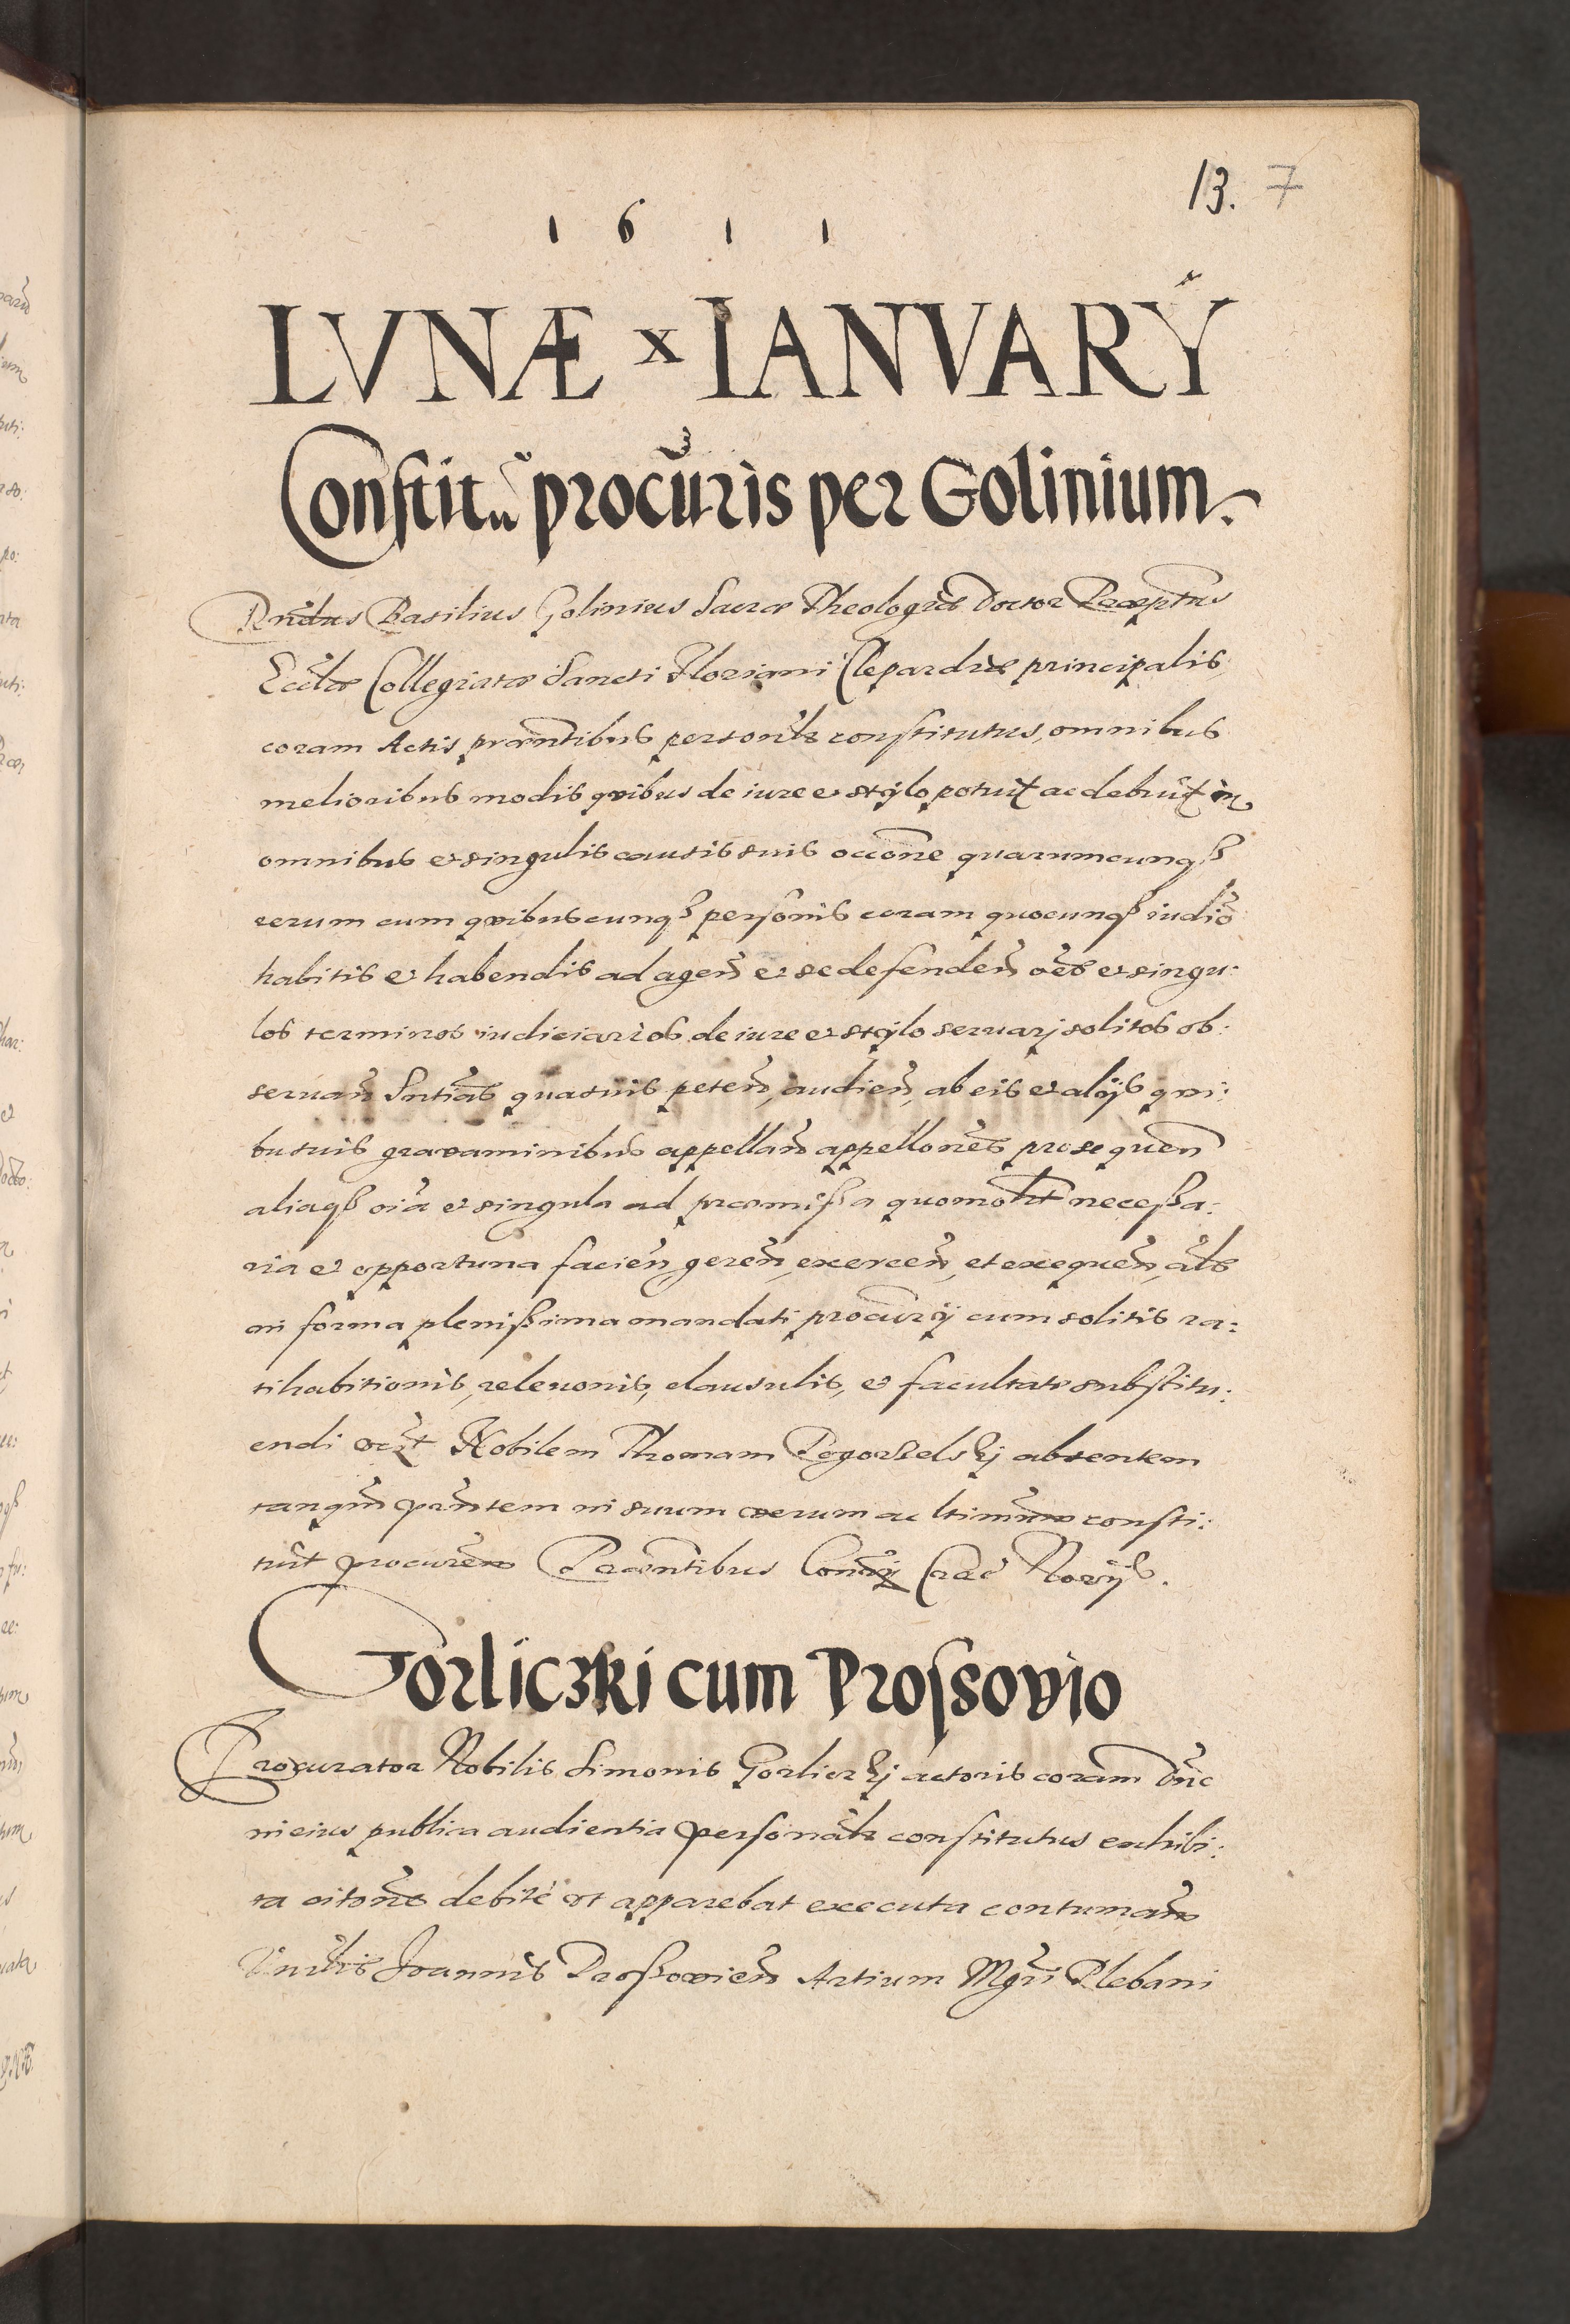 13. 7
1 6 1 1
LVNÆ x IANVARY
Constitu procuris per Golinium.
Rndus Basilius Golinius Sacræ Theologiæ Doctor Præptus
Ecclæ Collegiatæ Sancti Floriani Clepardiæ principalis
coram Actis præntibus personlr constitutus, omnibus
melioribus modis quibus de iure et stylo potuit ac debuit in
omnibus et singulis causis suis occone quarumcunqȝ
rerum cum quibuscunqȝ personis coram quocunqȝ iudio
habitis et habendis ad agen et se defenden oes et singu:
los terminos iudiciarios de iure et stylo seruarj solitos ob:
seruan Sntias quasuis peten, audien, ab eis et alijs qui:
busuis grauaminibus appellan appellones prosequen
aliaqȝ oia et singula ad præmißa quomolt neceßa:
ria et opportuna facien, geren, exercen, et exequen, als
in forma plenißima mandati procurij cum solitis ra:
tihabitionis, releuonis, clausulis, et facultate substitu:
endi vnt Nobilem Thomam Pogorzelskj absentem
tanqm præntem in suum verum ac ltimum consti:
tuit procurem Præntibus Cracȝ Norijs.
Gorliczki cum Prossovio
Procurator Nobilis Simonis Gorliczkj actoris coram Dne
in eius publica audientia personalr constitutus exhibi:
ta citone debitè vt apparebat executa contumam
Joannis Proßouien Artium Mgri Plebani